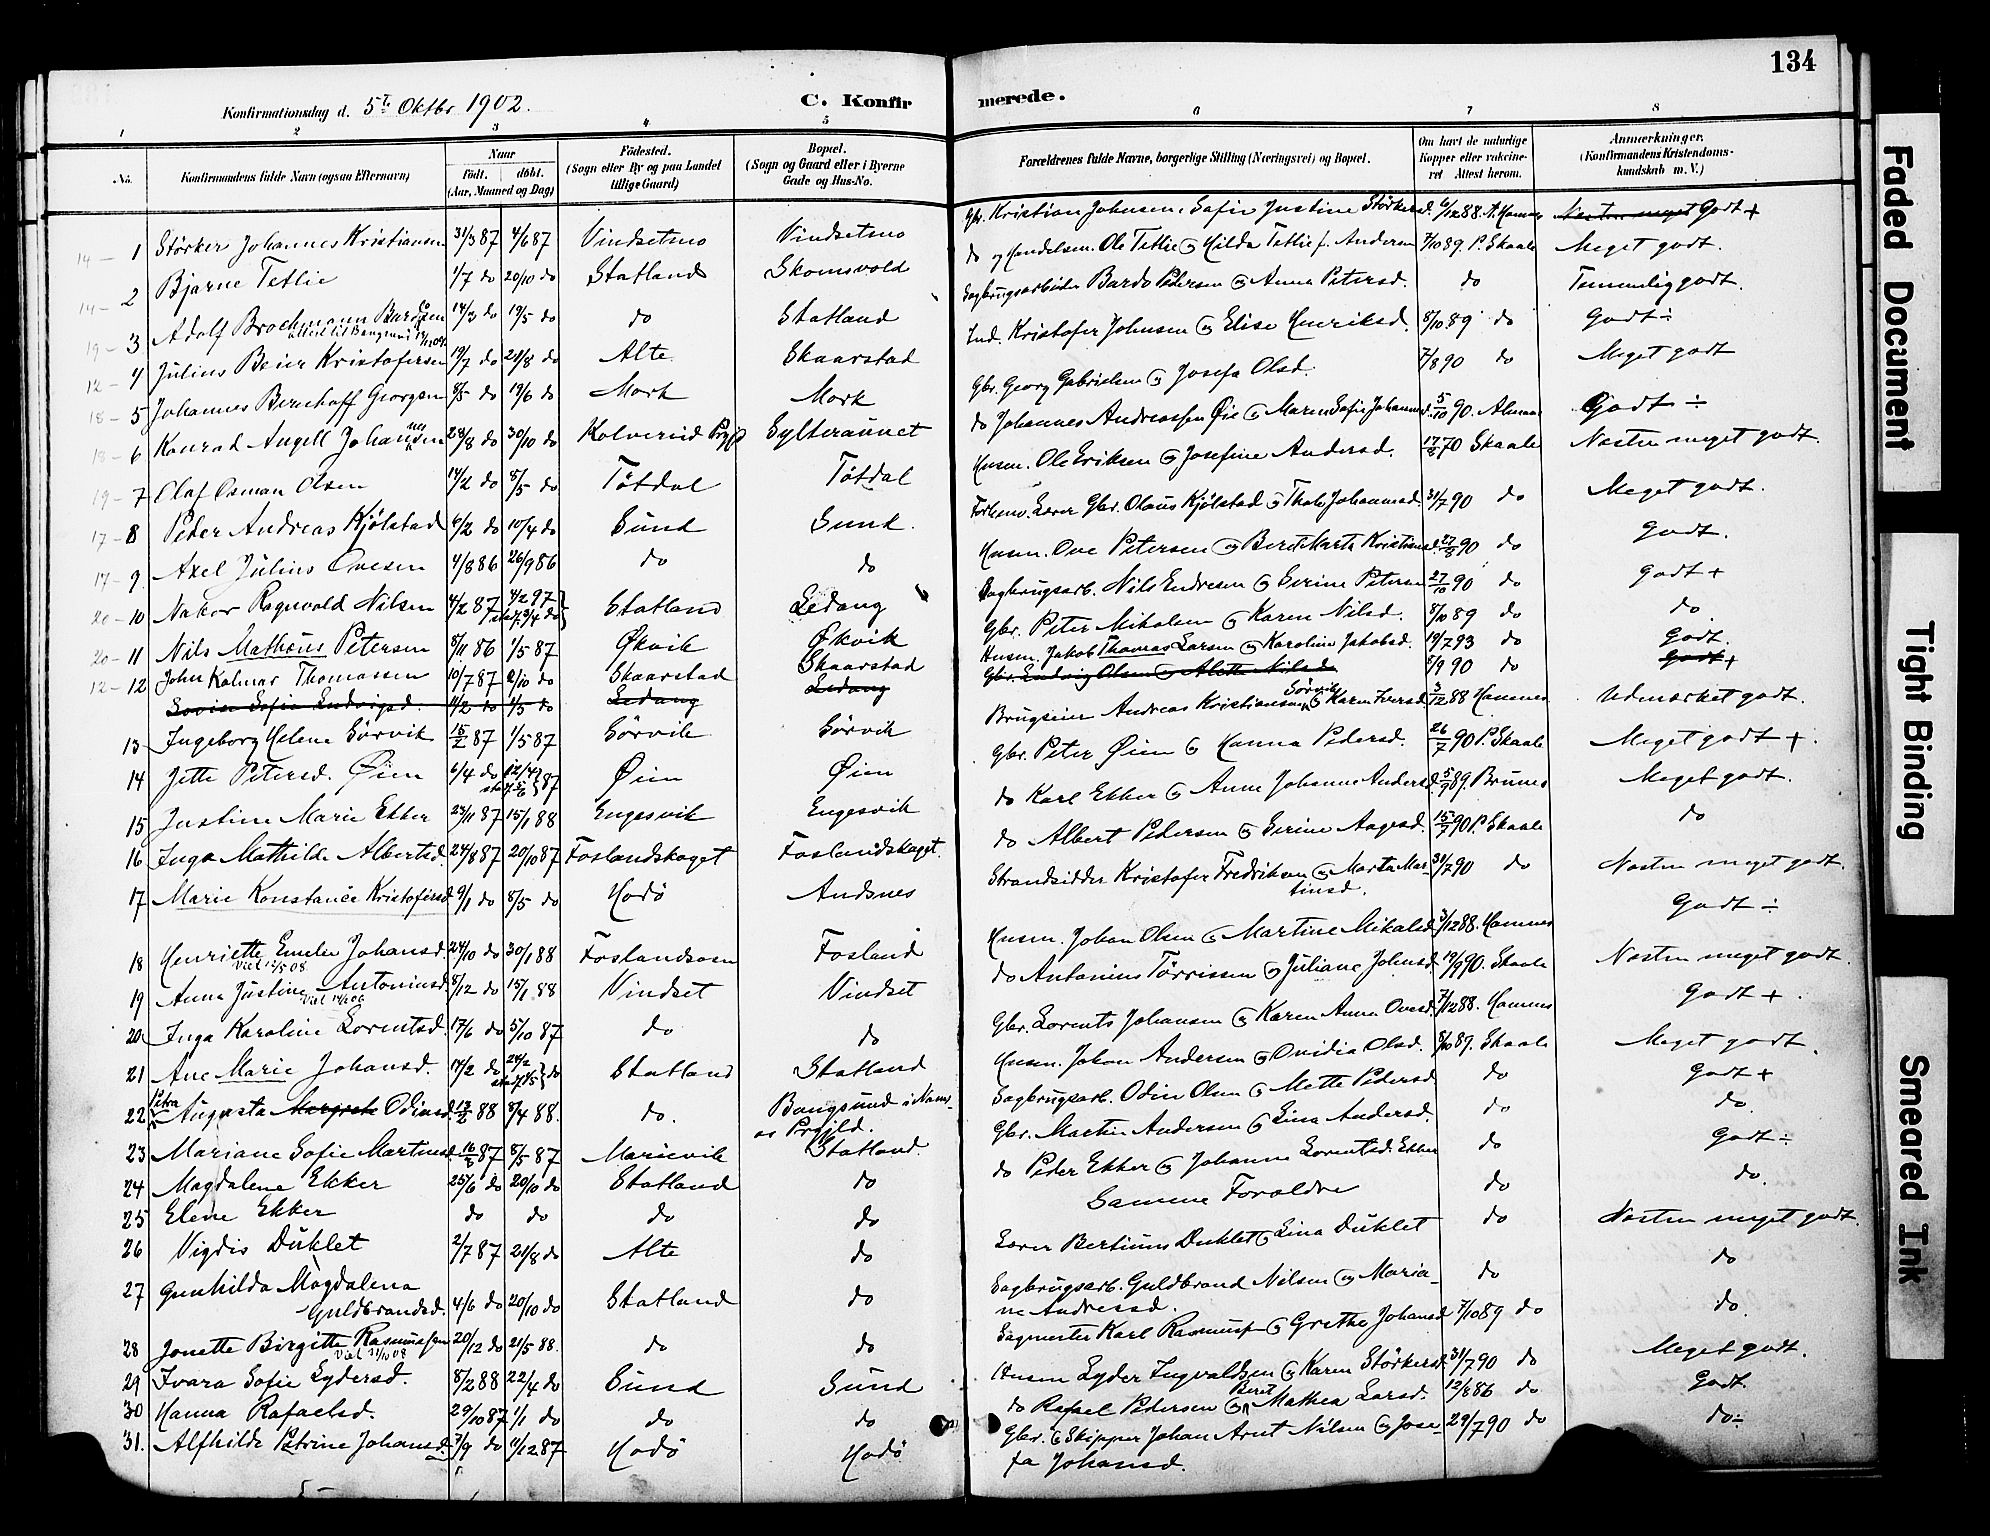 134
Konfirmationsdag d. 5te Oktbr 1902.
C. Konfirmerede.
1 2 3 4 5 6 7 8
No.
Konfirmandens fulde Navn (ogsaa Efternavn)
Naar
født. døbt.
(Aar, Maaned og Dag)
Fødested.
(Sogn eller By og paa Landet
tillige Gaard)
Bopæl.
(Sogn og Gaard eller i Byerne
Gade og Hus-No.
Forældrenes fulde Navne, borgerlige Stilling (Næringsvei) og Bopæl.
Om havt de naturlige
Kopper eller vakcine-
ret Attest herom.
Anmærkninger.
(Konfirmandens Kristendoms-
kundskab m. V.)
14 – 1 Størker Johannes Kristiansen 31/3 87 4/6 87 Vindsetmo Vindsetmo Gbr. Kristian Johnsen, Sofie Justine Størkersd. 6/12 88. Næsten meget Godt +
14 – 2 Bjarne Tetlie 1/7 do 20/10 do Statland Skomsvold do og Handelsm. Ole Tetlie og Hilda Tetlie f. Andersen 7/10 89. P. Skaale Meget godt.
19 – 3 Adolf Brochmann Bardosen 14/3 do 19/5 do do Statland Sagbrugsarbeider Bardo Pedersen og Anna Petersd. do Temmelig godt.
12 – 4 Julius Beier Kristofersen 19/7 do 21/8 do Alte Skaarstad Ind. Kristofer Johnsen og Elise Henriksd. 8/10 89 do Godt ÷
18 – 5 Johannes Bernhoff Georgsen 8/5 do 19/6 do Mork Mork Gbr. Georg Gabrielsen og Josefa Olsd. 7/8 90 do Meget godt
18 – 6 Konrad Angell Johannesen 28/8 do 30/10 do Kolvereid Prgj. Sylteraunet do Johannes Andreassen Øie og Maren Sofie Johannesd. 5/10 90. Godt ÷
19 – 7 Olaf Osman Olsen 14/2 do 8/5 do Tøtdal Tøtdal Husm. Ole Eriksen og Josefine Andersd. Skaale Næsten meget godt.
17 – 8 Peder Andreas Kjølstad 6/2 do 10/4 do Sund Sund. Lærer Gbr. Olaus Kjølstad og Johannesd. 31/7 90 do Meget godt.
17 – 9 Axel Julius Ovesen 4/8 86 26/9 86 do do Husm. Ove Petersen og Berit Marta Kristiansd. 27/8 90 do Godt.
20 – 10 Ragnvald Nilsen 4/2 87 Statland Ledang Sagbrugsarb. Nils Endresen og Serine Petersen 27/10 90 do Godt +
20 – 11 Nils Matheus Petersen 8/11 86 1/5 87 Økvik Økvik Gbr. Peter Mikalsen og Karen Nilsd. 8/10 89 do do
12 – 12 John Kolmar Thomassen 10/7 87 2/10 do Skaarstad Skaarstad Husm. Jakob Thomas Larsen og Karoline Jakobsd. 19/7 93 do Godt.
Lovise Sofie Ludvigsd. 4/2 do 1/5 do Ledang Ledang Gbr. Ludvig Olsen og Alette Nilsd. 8/9 90 do Godt +
13 Ingeborg Helene Sørvik 15/2 87 1/5 87 Sørvik Sørvik Brugseier Andreas Kristiansen Sørvik og Karen Iversd. 3/12 88 Hammer Udmærket godt.
14 Jette Petersd. Øien 6/4 do 12/4 87 Øien Øien Gbr. Peter Øien og Hanna Pedersd. 26/7 90 P. Skaale Meget godt +.
15 Justine Marie Ekker 23/11 87 15/1 88 Engesvik Engesvik do Karl Ekker og Anne Johanna Andersd. 5/9 89. Meget godt.
16 Inga Mathilde Albertsd. 24/8 87 20/10 87 Foslandskaget Foslandskaget. do Albert Pedersen og Serine Aagesd. 15/7 90 P. Skaale do
17 Marie Konstance Kristofersd. 9/1 do 8/5 do Hodø Andsnes Strandsidder Kristofer Fredriksen og Marta Mar-
tinsd. 31/7 90 do Næsten meget godt.
18 Henriette Emelie Johansd. 24/10 do 30/1 88 Foslandsosen Fosland Husm. Johan Olsen og Martine Mikalsd. 3/12 88. Hammer Godt ÷
Viet 12/5 08
19 Anna Justine Antoniusd. 8/12 do 15/1 88 Vindset Vindset do Antonius Tørrissen og Juliane Johnsd. 19/9 90. Skaale Næsten meget godt.
20 Inga Karoline Lorentsd. 17/6 do 5/10 87 do do Gbr. Lorents Johansen og Karen Anna Ovesd. 7/12 88. Hammer Godt +.
21 Ane Marie Johansd. 14/2 do 24/2 do Statland Statland Husm. Johan Andersen og Ovidia Olsd. 8/10 89. Skaale Meget godt.
22 Petra Augusta Margrete Odinsd. 13/2 88 2/4 88. do. Bangsund i Nams-
os Prgjld. Sagbrugsarb. Odin Olsen og Mette Pedersd do Godt +
23 Mariane Sofie Martinsd. 16/3 87 8/5 87 Marievik Statland. Gbr. Martin Andersen og Lina Andersd. do do.
24 Magdalena Ekker 25/6 do 20/10 do Statland do do Peder Ekker og Johanna Lorentsd. Ekker do Godt ÷
25 Elene Ekker do do do do Samme Forældre do do.
26 Vigdis Duklet 2/7 87 21/8 do Alte do Lærer Bertinus Duklet og Lina Duklet do Næsten meget godt.
27 Gunhilda Magdalena
Guldbrandsd. 4/6 do 20/10 do Statland do Sagbrugsarb. Guldbrand Nilsen og Maria-
ne Andreasd. do do
28 Jonette Birgitte Rasmussen 20/12 do 21/5 88. do do Sagmester Karl Rasmuss. og Grethe Johansd 7/10 89 do do.
Viet 31/10 08
29 Ivara Sofie Lydersd. 8/2 88 22/4 do Sund Sund Husm Lyder Ingvaldsen og Karen Størkersd. 31/7 90 do Meget godt.
30 Hanna Rafaelsd. 29/10 87 1/1 do do do do Rafael Pedersen og Beret Mathea Larsd. 12/8 86 do Godt.
31. Alfhilde Petrine Johansd. 7/9 do 11/12 87 Hodø Hodø Gbr. og Skipper Johan Arnt Nilsen og Jose-
fa Johansd. 29/7 90 do do ÷
Faded Document
Tight Binding
Smeared Ink